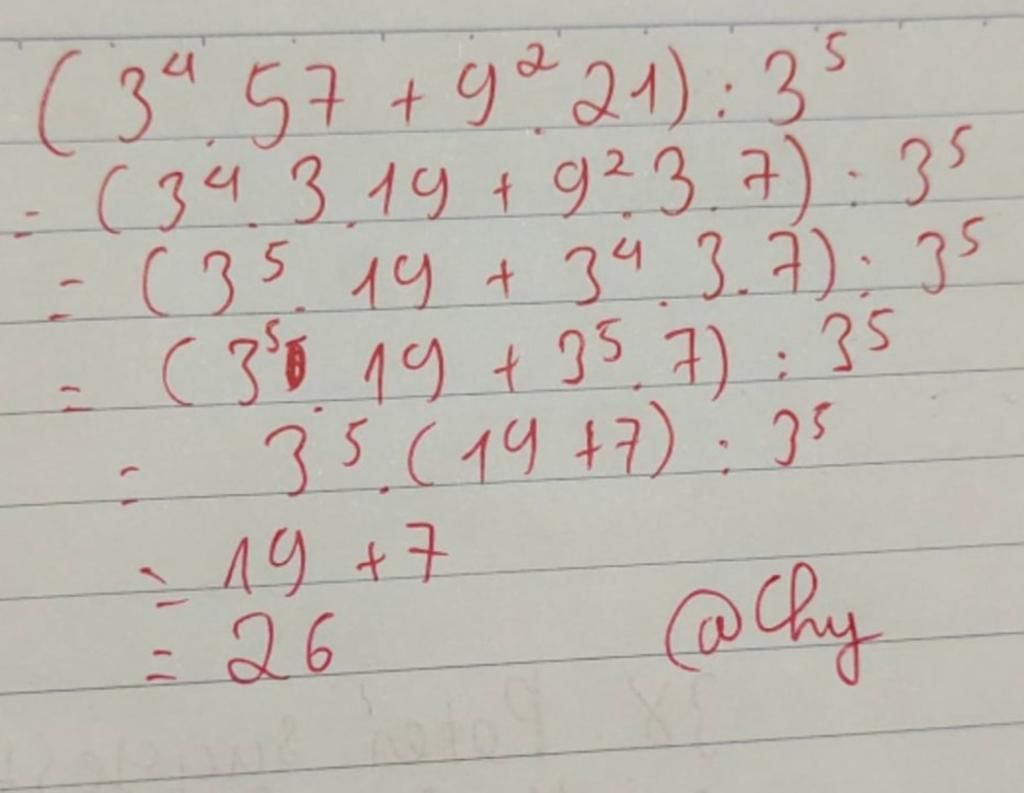 (3⁴.57 + 9².21) : 3⁵
= (3⁴.3.19 + 9².3.7) : 3⁵
= (3⁵.19 + 3⁴.3.7) : 3⁵
= (3⁵.19 + 3⁵.7) : 3⁵
= 3⁵.(19+7) : 3⁵
= 19 + 7
= 26
@Chy